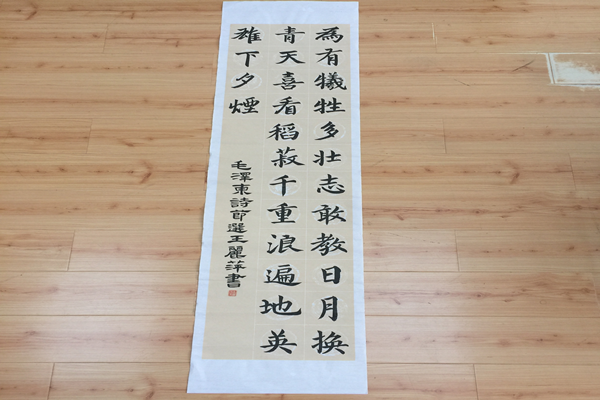 為有犧牲多壯志敢教日月換
青天喜看稻菽千重浪遍地英
雄下夕煙
毛澤東詩節選王麗萍書